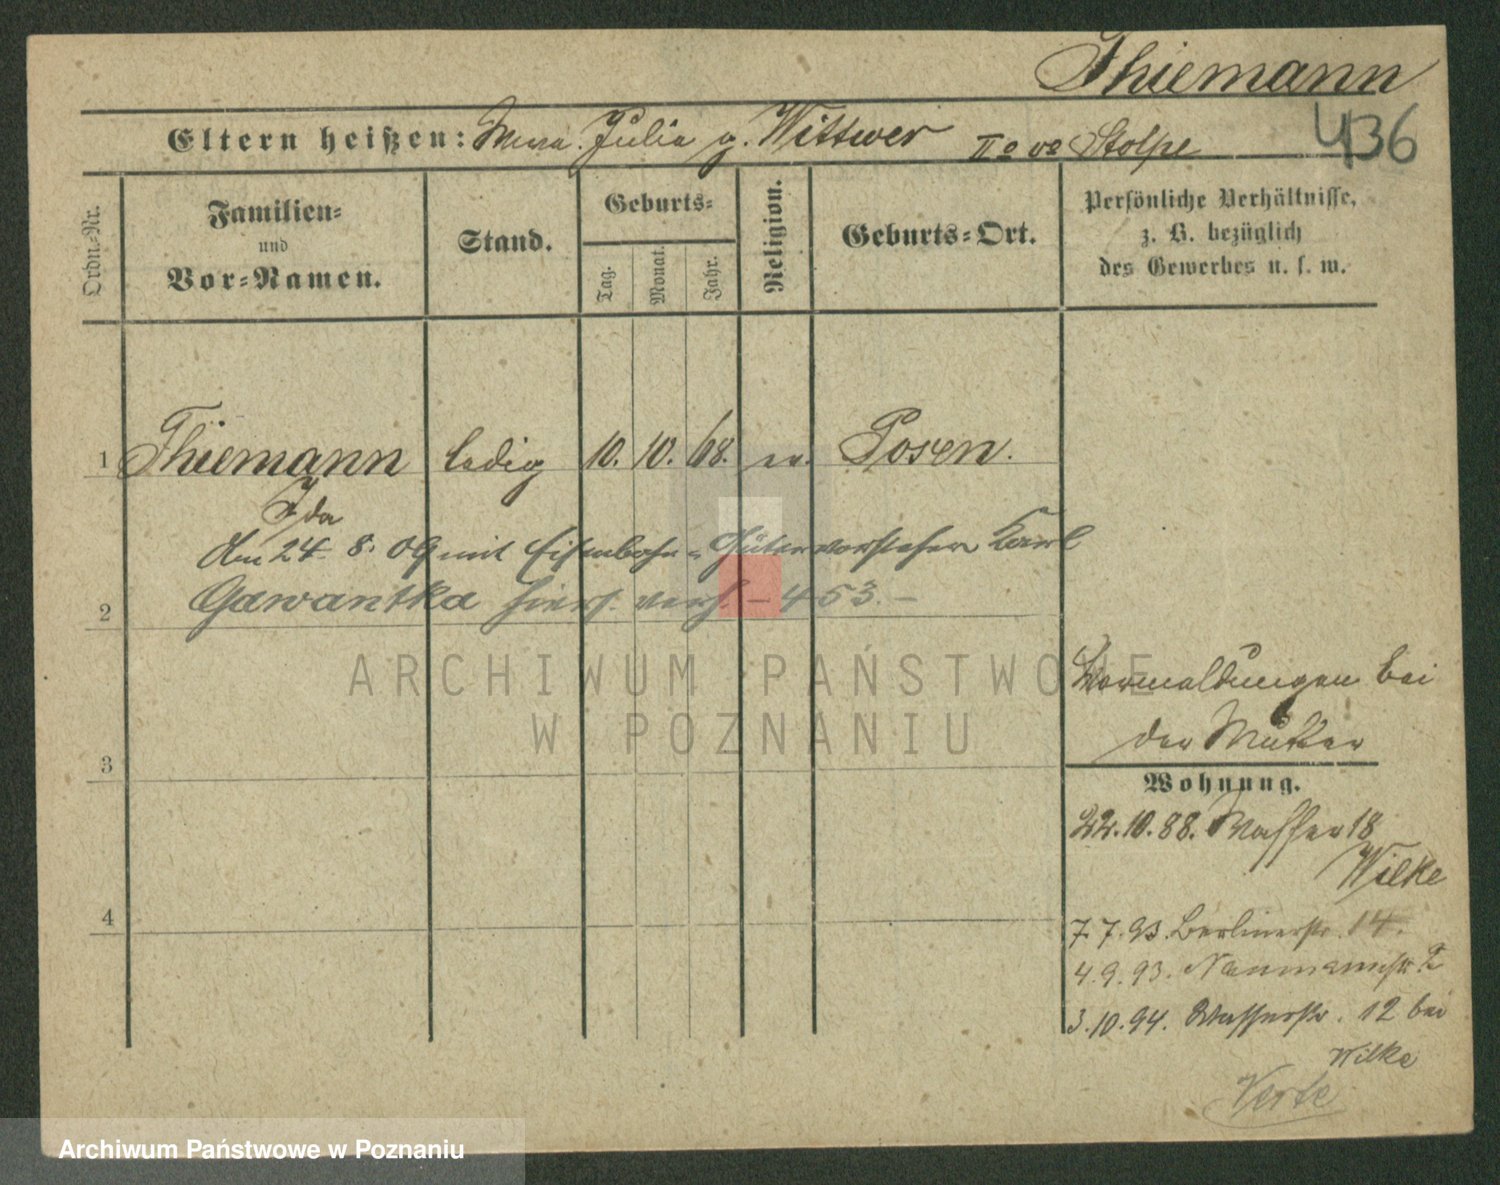 Thiemann
436
Eltern heißen: Julia g. Wittwer IIo vo Stolpe
Ordn.-Nr.
Familien-
und
Vor-Namen.
Stand.
Geburts-
Tag.
Monat.
Jahr.
Religion.
Geburts-Ort.
Persönliche Verhältnisse,
z. B. bezüglich
des Gewerbes u. s. w.
1 Thiemann ledig 10. 10. 68. ev. Posen.
Ida
Am 24. 8. 09 mit Eisenbahn-Gütervorsteher Karl
Gawantka hiers. verh. – 453. –
2
3
4
bei
der Mutter
Wohnung.
22.10.88. Wasser 18
Wilke
7.7.93. Berlinerstr. 14.
4.9.93. Naumannstr. 2
3.10.94. Wasserstr. 12 bei
Wilke
ARCHIWUM PAŃSTWOWE
W POZNANIU
Archiwum Państwowe w Poznaniu